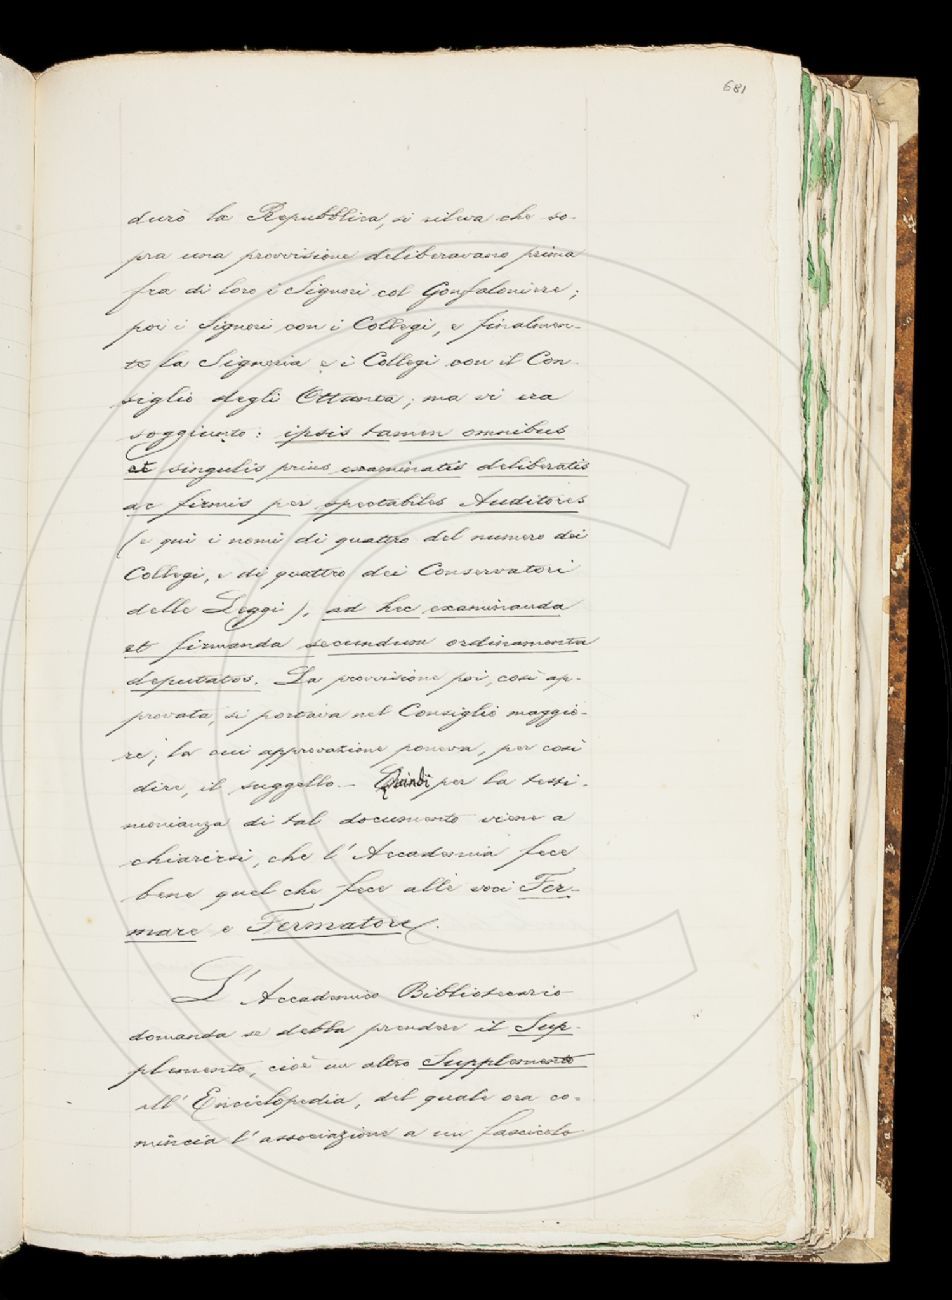 681
durò la Repubblica, si rileva che so-
pra una provvisione deliberavano prima
fra di loro i Signori col Gonfaloniere;
poi i Signori con i Collegi, e finalmen-
te la Signoria e i Collegi con il Con-
siglio degli Ottanta; ma vi era
soggiunto: ipsis tamen omnibus
et singulis prius examinatis deliberatis
ac firmis per spectabiles Auditores
(e qui i nomi di quattro del numero dei
Collegi, e di quattro dei Conservatori
delle Leggi), ad hec examinanda
et firmanda secundum ordinamenta
deputatos. La provvisione poi, così ap-
provata, si portava nel Consiglio maggio-
re; la cui approvazione poneva, per così
dire, il suggello. – Quindi per la testi-
monianza di tal documento viene a
chiarirsi, che l'Accademia fece
bene quel che fece alle voci Fer-
mare e Fermatore.
L'Accademico Bibliotecario
domanda se debba prendere il Sup-
plemento, cioè un altro Supplemento
all'Enciclopedia, del quale ora co-
mincia l'associazione a un fascicolo